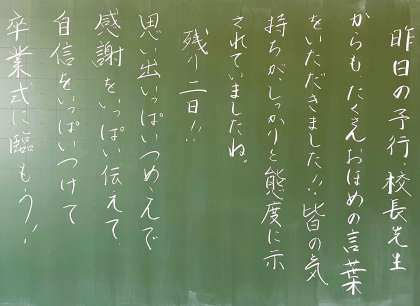 昨日の予行、校長先生
からも、たくさんおほめの言葉
をいただきました!!皆の気
持ちが、しっかりと態度に示
されていましたね。
残り二日!!
思い出いっぱいつめこんで
感謝をいっぱい伝えて
自信をいっぱいつけて
卒業式に臨もう!